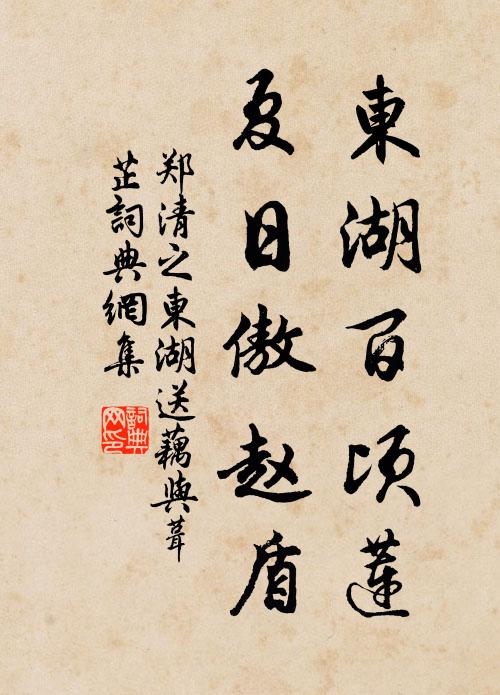 東湖百顷蓮
夏日傲赵盾
郑清之東湖送藕與葺
芷詞典網集
詞典网印